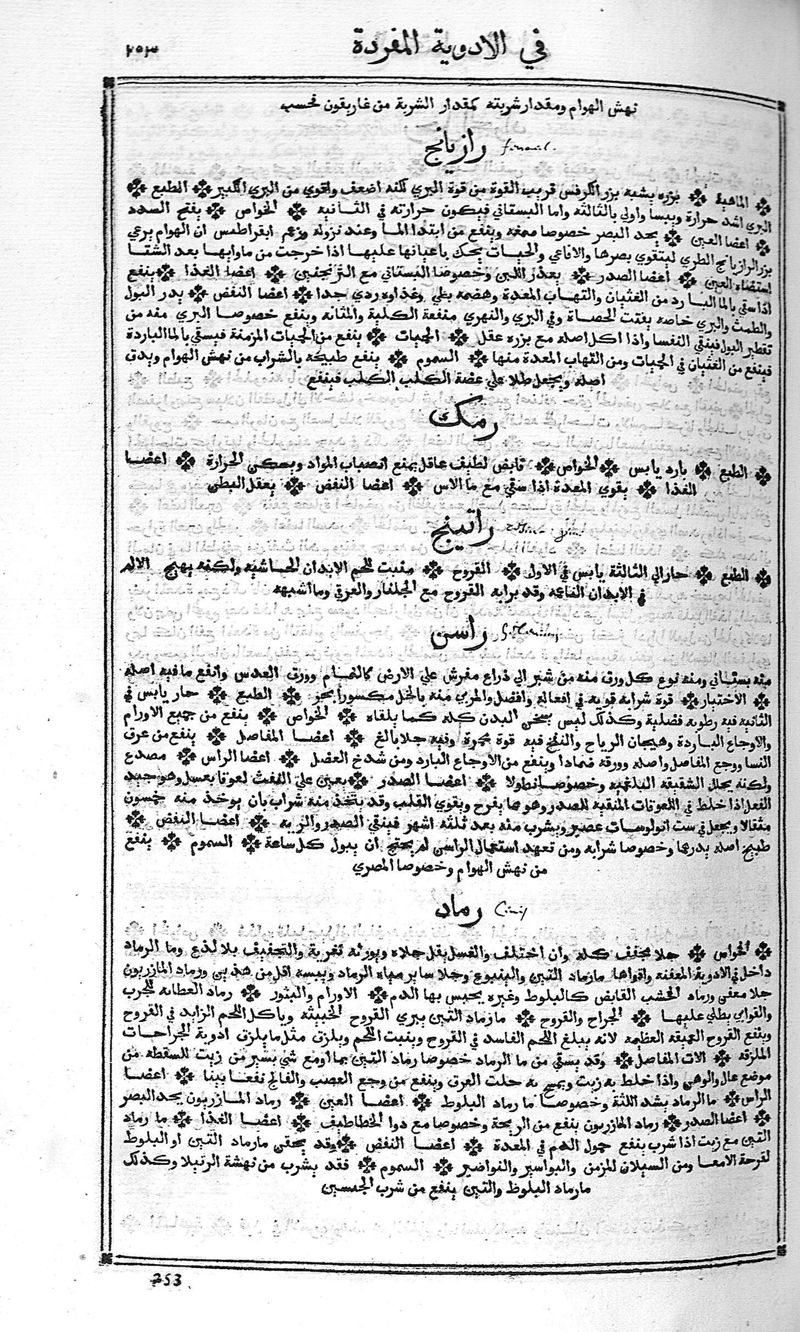 في الادوية المفردة
٢٥٣
نهش الهوام ومقدار شربته كمقدار الشربة من غاريقون فحسب
رازيانج
الماهية بزره يشبه بزر الكرفس قريب القوة من قوة البري لكنه اضعف واقوي من البري الكبير الطبع
البري اشد حرارة ويبسا واولي بالثالثة واما البستاني فيكون حرارته في الثانيه الخواص يفتح السدد
اعضا العين يحد البصر خصوصا صمغه وينفع من ابتدا الما وعند نزوله وزعم ابقراطيس ان الهوام يرعي
بزر الرازيانج الطري ليتقوي بصرها والافاعي والحيات يحك باعيانها عليها اذا خرجت من ماوايها بعد الشتا
استضاه العين اعضا الصدر يغذر اللبن وخصوصا البستاني مع الترنجفين اعضا الغذا ينفع
اذا سقي بالما البارد من الغثيان والتهاب المعدة وهضمه بطي وغذاوه ردي جدا اعضا النفض يدر البول
والطمث والبري خاصه يفتت الحصاة وفي البري والنهري منفعة الكلية والمثانه وينفع خصوصا البري منه من
تقطير البول فينقي النفسا واذا اكل اصله مع بزره عقل الحميات ينفع من الحميات المزمنة فيسقي بالما الباردة
فينفع من الغثيان في الحميات ومن التهاب المعدة منها السموم ينفع طبيخه بالشراب من نهش الهوام ويدق
اصله ويجعل طلا علي عضة الكلب الكلب فينفع
رمك
الطبع بارد يابس الخواص قابض لطيف عاقل يمنع انصباب المواد ويسكن الحرارة اعضا
الغذا يقوي المعدة اذا سقي مع ما الاس اعضا النفض يعقل البطن
راتينج
الطبع حار الي الثالثة يابس في الاول القروح منبت للحم الابدان الجاسئه ولكنه يهيج الالم
في الابدان الناعمه وقد يرابه القروح مع الجلنار والعزي وما اشبهه
راسن
منه بستاني ومنه نوع كل ورق منه من شبر الي ذراع مفرش علي الارض كالنمام وورق العدس وانفع ما فيه اصله
الاختيار قوة شرابه قويه في افعاله وافضل والمربي منه بالخل مكسورا بحو الطبع حار يابس في
الثانيه فيه رطوبه فضلية وكذلك ليس يسخن البدن كله كما يلقاه الخواص ينفع من جميع الاورام
والاوجاع الباردة وهيجان الرياح والنفخ فيه قوة محمرة وفيه جلا بالغ اعضا المفاصل ينفع من عرق
النسا ووجع المفاصل واصله وورقه ضمادا وينفع من الاوجاع البارد ومن شدخ العضل اعضا الراس مصدع
ولكنه يحلل الشقيقه البلغميه وخصوصا نطولا اعضا الصدر يعين علي النفث لعوقا بعسل وهو جيد
الفعل اذا خلط في اللعوقات المنقيه للصدر وهو مما يفرح ويقوي القلب وقد يتخذ منه شراب بان يوخذ منه خمسون
مثقالا ويجعل في ست اتولوسات عصير ويشرب منه بعد ثلثه اشهر فينقي الصدر والريه اعضا النفض
طبيخ اصله يدرهما وخصوصا شرابه ومن تعهد استعمال الراسن لم يحتج ان يبول كل ساعة السموم ينفع
من نهش الهوام وخصوصا المصري
رماد
الخواص جلا مجفف كله وان اختلف والغسل يقل جلاه ويورثه تغرية والتجفيف بلا لذع وما الرماد
داخل في الادوية المعفنه واقواها ما رماد التين والينبوع وجلا ساير مياه الرماد ويبسه اقل من هذين ورماد المازريون
جلا معفي ورماد الخشب القابض كالبلوط وغيره يحبس بها الدم الاورام والبثور رماد العظانه للجرب
والقوابي يطلي عليها الجراح والقروح ما رماد التين يبري القروح الخبيثه وياكل اللحم الزايد في القروح
وينفع القروح العميقه العظيمه لانه يبلغ اللحم الفاسد في القروح وينبت اللحم ويلزق مثل ما يلزق ادوية الجراحات
الملزقه الات المفاصل وقد يسقي من ما الرماد خصوصا رماد التين بما او مع شي يسير من زيت للسقطه من
موضع عال والوهن واذا خلط به زيت ويمسح به حلت العرق وينفع من وجع العصب والفالج نفعا بينا اعضا
الراس ما الرماد يشد اللثة وخصوصا ما رماد البلوط اعضا العين رماد المازريون يحد البصر
اعضا الصدر رماد المازريون ينفع من الربحة وخصوصا مع ذوا الخطاطيف اعضا الغذا ما رماد
التين مع زيت اذا شرب ينفع حمول الدم في المعدة اعضا النفض وقد يحقن ما رماد التين او البلوط
لقرحة الامعا ومن السيلان المزمن والبواسير والنواصير السموم فقد يشرب من نهشة الرتيلا وكذلك
ما رماد البلوط والتين ينفع من شرب الجبسين
253